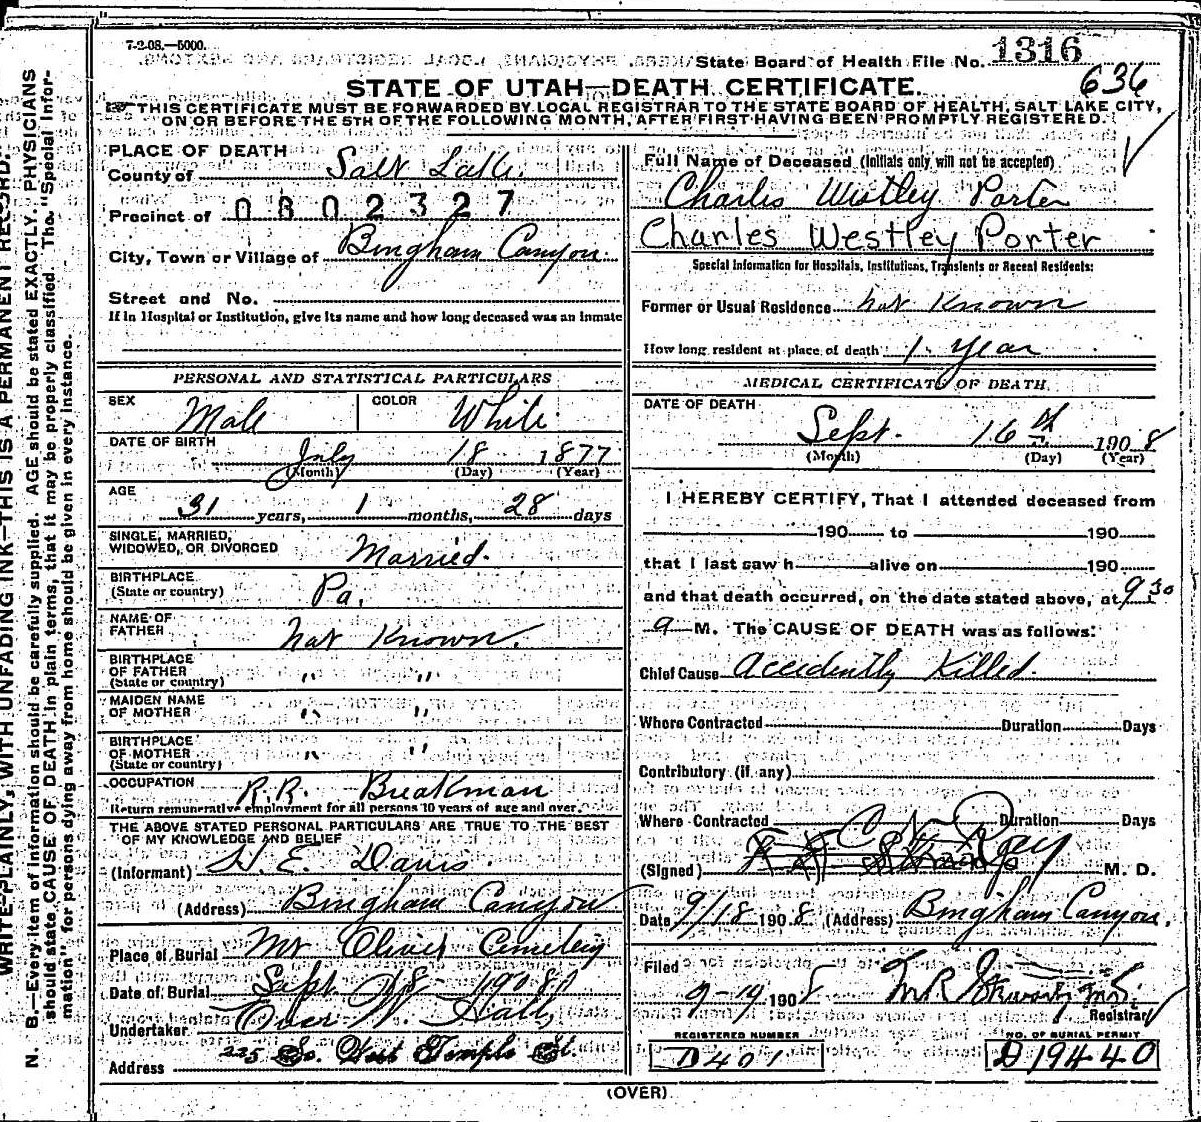 7-2-08.—5000.
State Board of Health File No. 1316
636
STATE OF UTAH—DEATH CERTIFICATE.
THIS CERTIFICATE MUST BE FORWARDED BY LOCAL REGISTRAR TO THE STATE BOARD OF HEALTH, SALT LAKE CITY,
ON OR BEFORE THE 5TH OF THE FOLLOWING MONTH, AFTER FIRST HAVING BEEN PROMPTLY REGISTERED.
WRITE PLAINLY, WITH UNFADING INK—THIS IS A PERMANENT RECORD.
N. B.—Every item of information should be carefully supplied. AGE should be stated EXACTLY. PHYSICIANS
should state CAUSE OF DEATH in plain terms, that it may be properly classified. The "Special Infor-
mation" for persons dying away from home should be given in every instance.
PLACE OF DEATH
County of Salt Lake.
Precinct of 0802327
City, Town or Village of Bingham Canyon.
Street and No.
If in Hospital or Institution, give its name and how long deceased was an inmate
PERSONAL AND STATISTICAL PARTICULARS
SEX Male COLOR White.
DATE OF BIRTH
July 18 1877
(Month) (Day) (Year)
AGE
31 years, 1 months, 28 days
SINGLE, MARRIED,
WIDOWED, OR DIVORCED Married.
BIRTHPLACE
(State or country) Pa.
NAME OF
FATHER not Known.
BIRTHPLACE
OF FATHER
(State or country) " "
MAIDEN NAME
OF MOTHER " "
BIRTHPLACE
OF MOTHER
(State or country) " "
OCCUPATION R.R. Breakman
Return remunerative employment for all persons 10 years of age and over.
THE ABOVE STATED PERSONAL PARTICULARS ARE TRUE TO THE BEST
OF MY KNOWLEDGE AND BELIEF
(Informant) H. E. Davis.
(Address) Bingham Canyon
Place of Burial Mt Olivet Cemetery
Date of Burial Sept 18 1908
Undertaker
Address 225 So. West Temple St.
Full Name of Deceased (Initials only will not be accepted)
Charles Westley Porter
Charles Westley Porter
Special Information for Hospitals, Institutions, Transients or Recent Residents:
Former or Usual Residence not Known
How long resident at place of death 1. Year
MEDICAL CERTIFICATE OF DEATH
DATE OF DEATH
Sept. 16th 1908
(Month) (Day) (Year)
I HEREBY CERTIFY, That I attended deceased from
190 to 190
that I last saw h alive on 190
and that death occurred, on the date stated above, at 9 30
a M. The CAUSE OF DEATH was as follows:
Chief Cause Accidently Killed.
Where Contracted Duration Days
Contributory (if any)
Where Contracted Duration Days
(Signed) Ray M. D.
Date 9/18 1908 (Address) Bingham Canyon.
Filed 9-19 1908
Registrar
REGISTERED NUMBER
D401
NO. OF BURIAL PERMIT
D19440
(OVER)